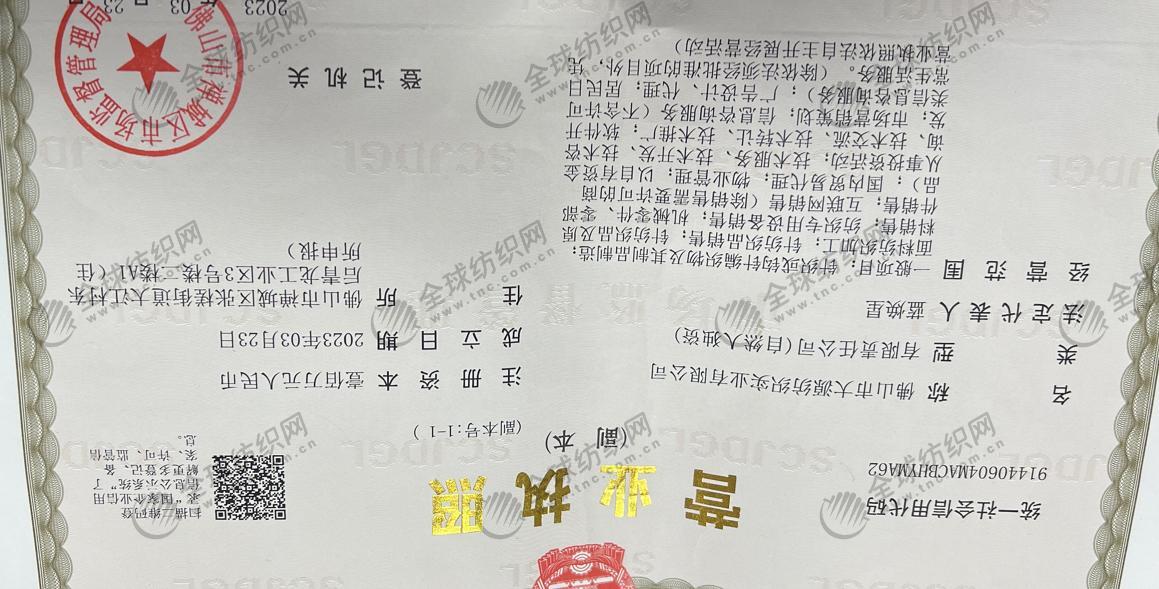 营业执照
(副 本)
(副本号:1-1)
统一社会信用代码
91440604MACBHYMA62
扫描二维码登
录“国家企业信用
信息公示系统”了
解更多登记、备
案、许可、监管信
息。
名 称 佛山市大源纺织实业有限公司
类 型 有限责任公司(自然人独资)
法定代表人 蓝焕星
经营范围 一般项目：针织或钩针编织物及其制品制造；
面料纺织加工；针纺织品销售；针纺织品及原
料销售；纺织专用设备销售；机械零件、零部
件销售；互联网销售（除销售需要许可的商
品）；国内贸易代理；物业管理；以自有资金
从事投资活动；技术服务、技术开发、技术咨
询、技术交流、技术转让、技术推广；软件开
发；市场营销策划；信息咨询服务（不含许可
类信息咨询服务）；广告设计、代理；居民日
常生活服务。（除依法须经批准的项目外，凭
营业执照依法自主开展经营活动）
注册资本 壹佰万元人民币
成立日期 2023年03月23日
住 所 佛山市禅城区张槎街道大江村东
后青龙工业区3号楼二楼A1（住
所申报）
登记机关
佛山市禅城区市场监督管理局
2023 年 03 月 23
全球纺织网
www.tnc.com.cn